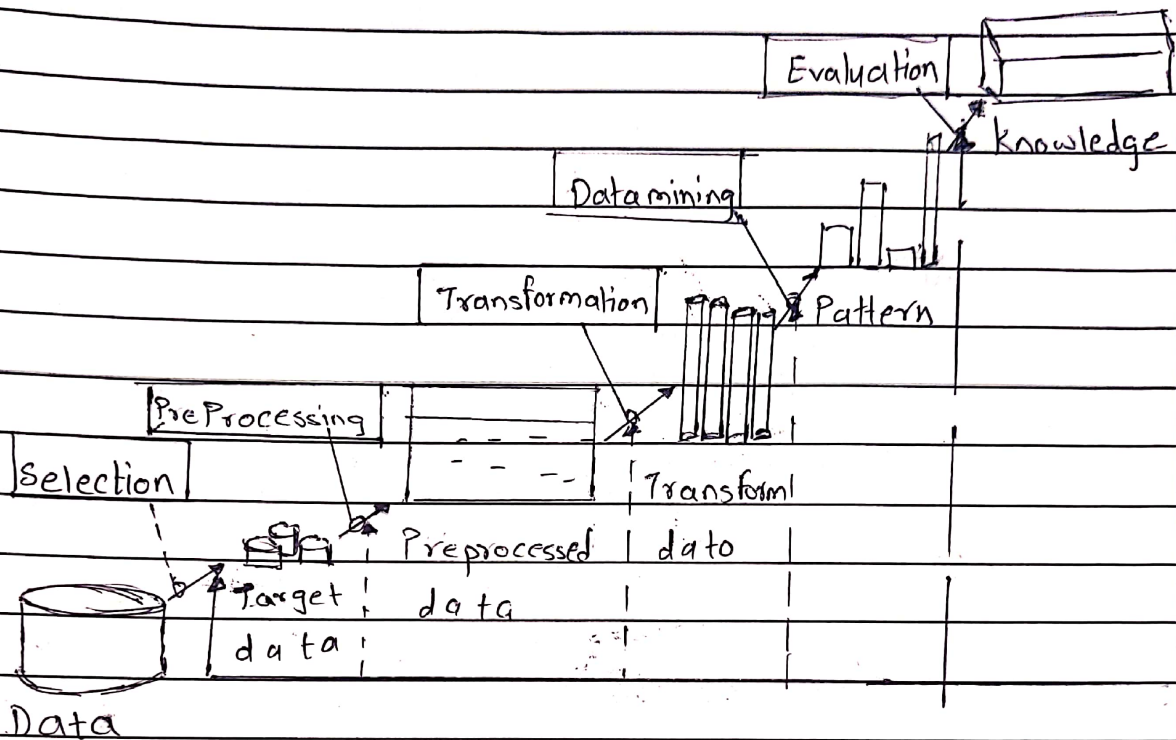 Evaluation
Knowledge
Datamining
Transformation
Pattern
PreProcessing
Selection
Transform
Preprocessed dato
Target data
data
Data